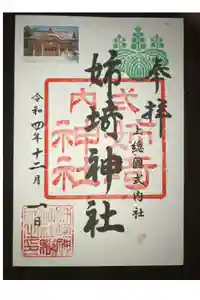 奉拝
上総國式内社
姉埼神社
式内
姉埼
神社
令和四年十二月一日